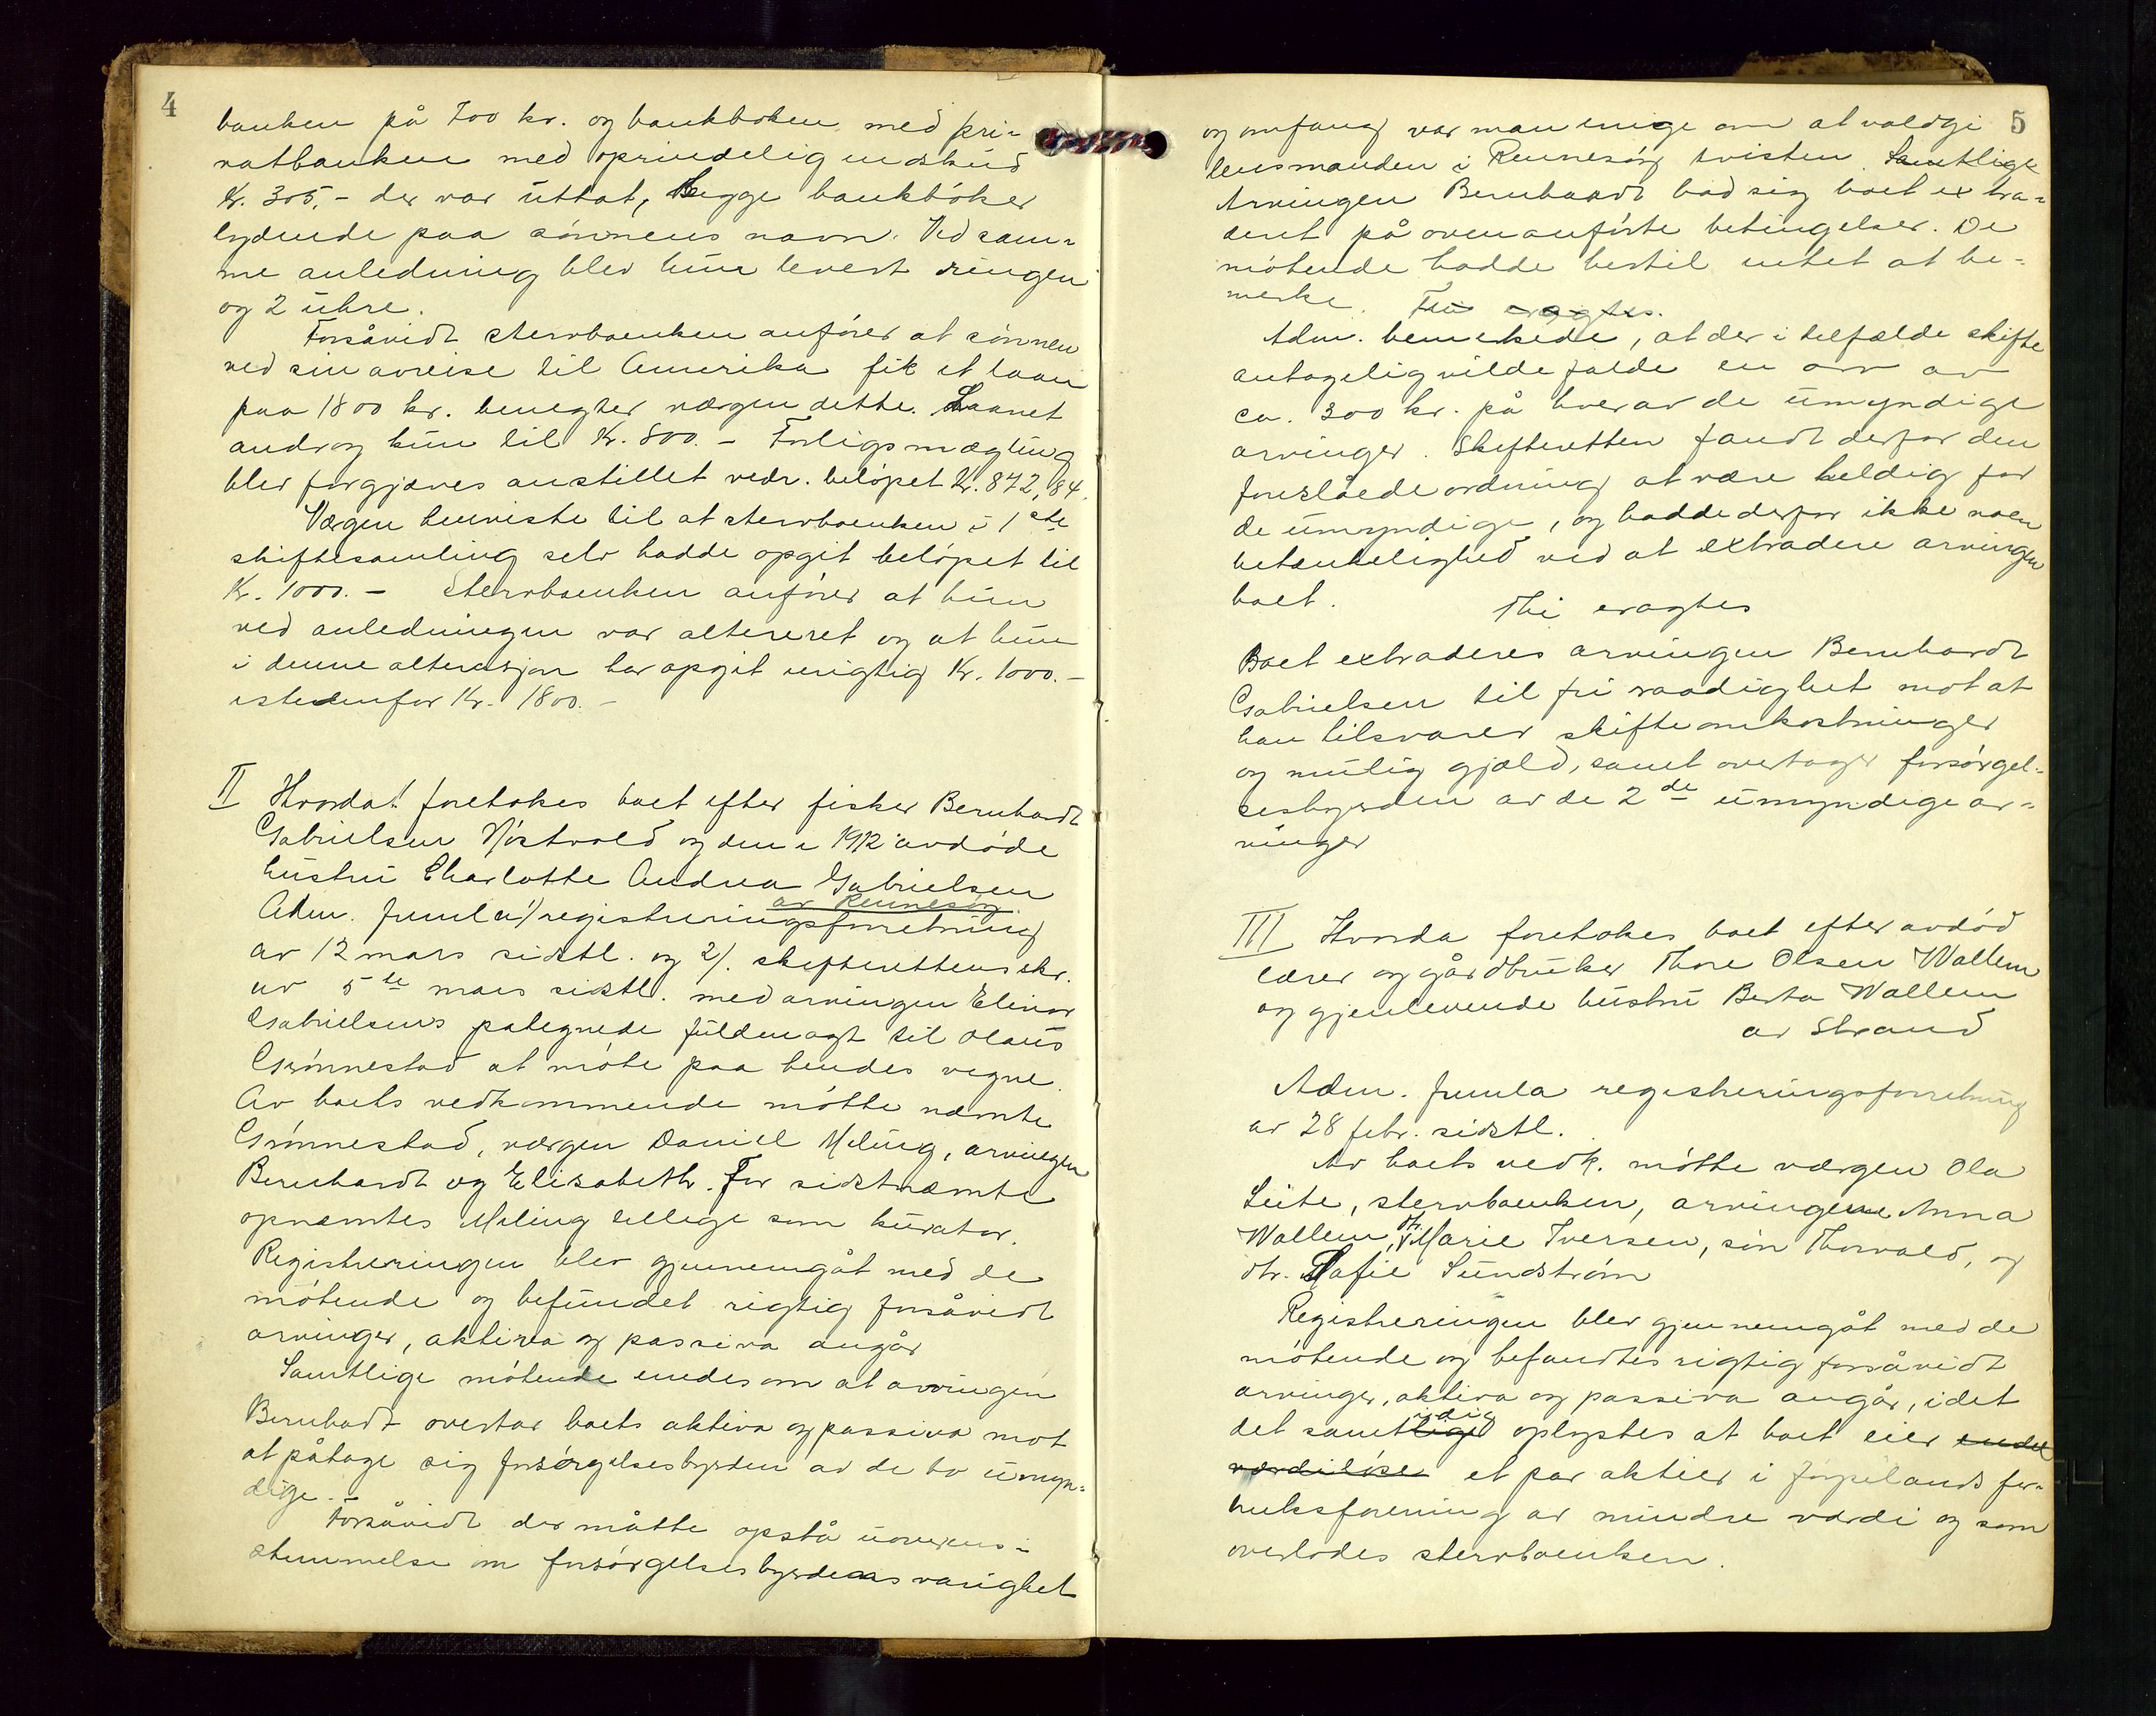 4
banken på 700 kr. og bankboken med pri-
vatbanken med oprindelig indskud
Kr. 305.- der var uttat, Begge bankbøker
lydende paa sønnens navn. Ved sam-
me anledning blev hun levert ringen
og 2 uhre.
Forsåvidt stervboenken anfører at sønnen
ved sin avreise til Amerika fik et laan
paa 1800 kr. benegter værgen dette. Laanet
androg kun til Kr. 800.- Forligsmægling
blev forgjæves anstillet vedr. beløpet Kr. 872,84.
Værgen henviste til at stervboenken i 1ste
skiftesamling selv hadde opgit beløpet til
Kr. 1000.- Stervboenken anfører at hun
ved anledningen var altereret og at hun
i denne alterasjon har opgit urigtig Kr. 1000.-
istedenfor Kr. 1800.-
II Hvorda! foretokes boet efter fisker Bernhardt
Gabrielsen Nøstvold og den i 1912 avdøde
hustru Charlotte Andrea Gabrielsen
av Rennesøy
Adm. fremla 1/ registreringsforretning
av 12 mars sidstl. og 2/. skifterettens skr.
av 5te mars sidstl. med arvingen Elinor
Gabrielsens pategnede fuldmagt til Olaus
Grønnestad at møte paa hendes vegne.
Av boets vedkommende møtte nævnte
Grønnestad, værgen Daniel Meling, arvingen
Bernhardt og Elisabeth. For sidstnævnte
opnævntes Meling tillige som kurator.
Registreringen blev gjennemgåt med de
møtende og befundet rigtig forsåvidt
arvinger, aktiva og passiva angår
Samtlige møtende enedes om at arvingen
Bernhadt overtar boets aktiva og passiva mot
at påtage sig forsørgelsesbyrden av de to umyn-
dige.-
Forsåvidt der måtte opstå uoverens-
stemmelse om forsørgelsesbyrdens varighet
5
og omfang var man enige om at voldgi
lensmanden i Rennesøy tvisten. Samtlige
Arvingen Bernhardt bad sig boet extra-
deret på ovenanførte betingelser. De
møtende hadde hertil intet at be-
merke. Thi eragtes.
Adm. bemerkede, at der i tilfælde skifte
antagelig vilde falde en arv av
ca. 300 kr. på hver av de umyndige
arvinger. Skifteretten fandt derfor den
foreslåede ordning at være heldig for
de umyndige, og hadde derfor ikke noen
betænkelighed ved at extradere arvingen
boet.
Thi eragtes
Boet extraderes arvingen Bernhardt
Gabrielsen til fri raadighet mot at
han tilsvarer skifteomkostninger
og mulig gjæld, samt overtager forsørgel-
sesbyrden av de 2de umyndige ar-
vinger
III Hvorda foretokes boet efter avdød
lærer og gårdbruker Thore Olsen Wallem
og gjenlevende hustru Berta Wallem
av Strand
Adm. fremla registreringsforretning
av 28 febr. sidstl.
Av boets vedk. møtte værgen Ola
Leite, stervboenken, arvingene Anna
Wallem, dtr. Marie Iversen, søn Thorvald, og
dtr. Sofie Sundstrøm
Registreringen blev gjennemgåt med de
møtende og befandtes rigtig forsåvidt
arvinger, aktiva og passiva angår, idet
det samtidig oplystes at boet eier endel
værdiløse et par aktier i Jørpelands for-
bruksforening av mindre værdi og som
overlodes stervboenken.